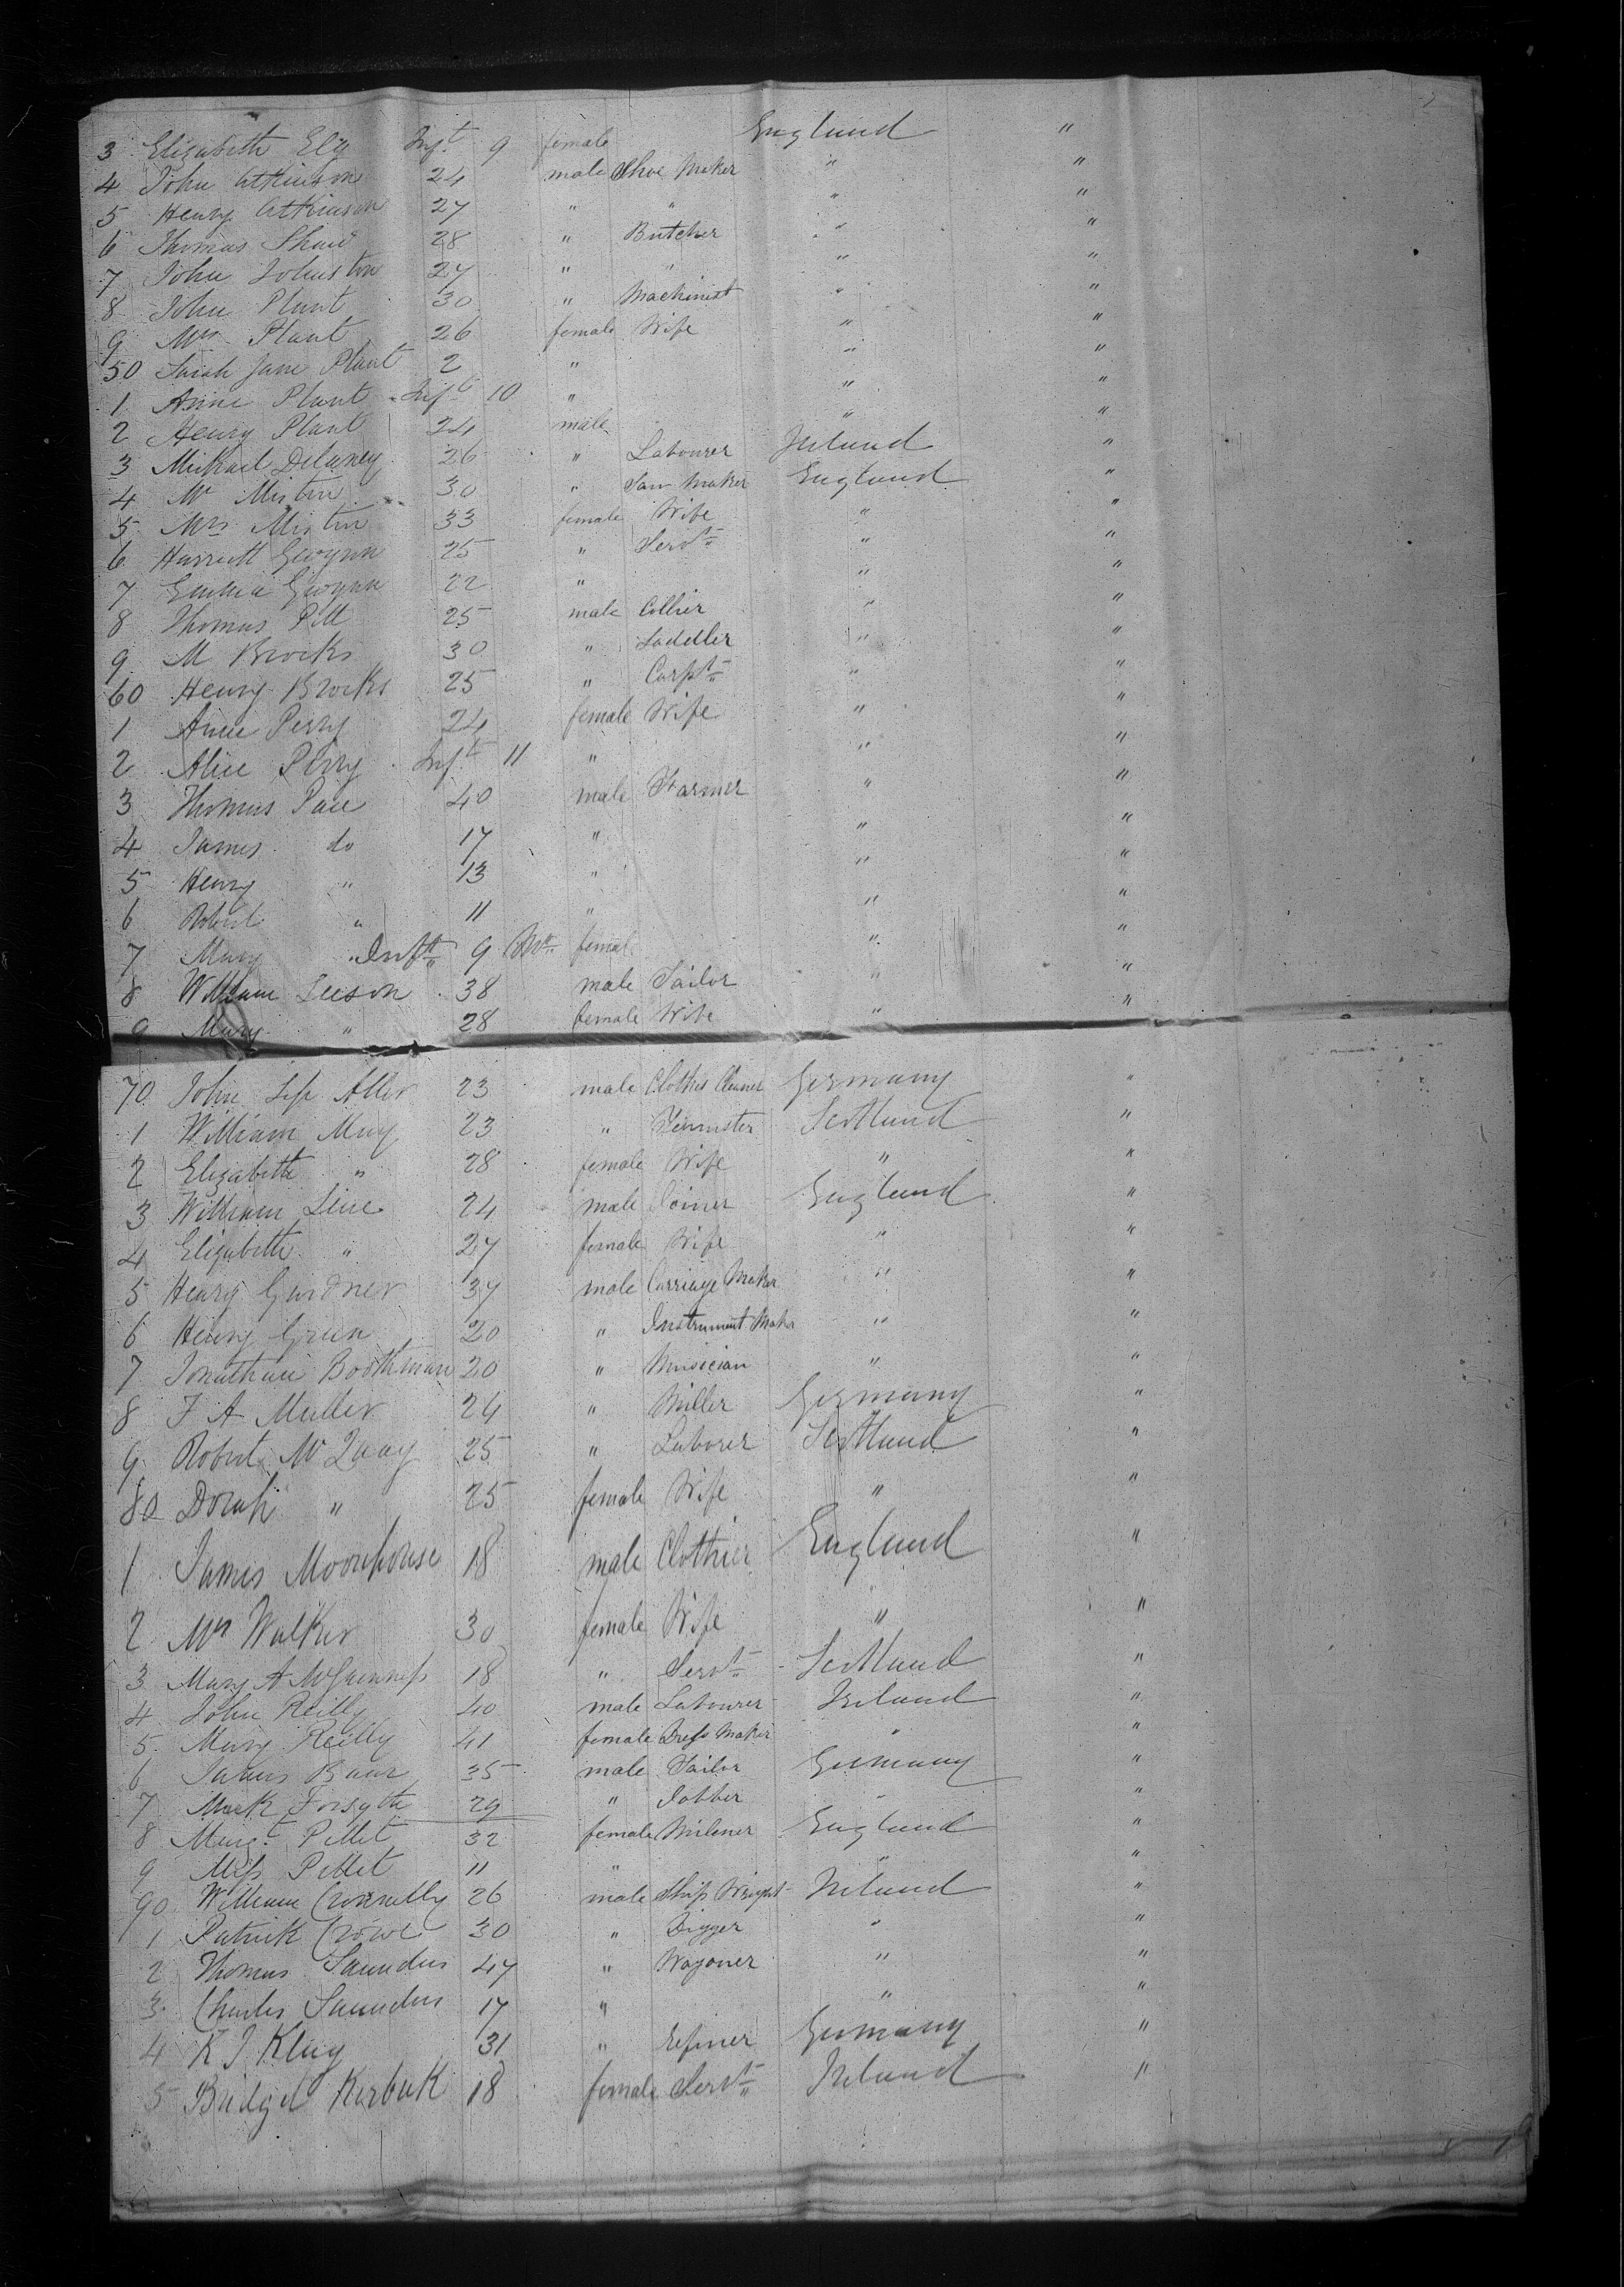 3 Elizabeth Ely Inft 9 female England "
4 John Atkinson 24 male Shoe Maker " "
5 Henry Atkinson 27 " " " "
6 Thomas Shaw 28 " Butcher " "
7 John Johnston 27 " " " "
8 John Plant 30 " Machinist " "
9 Mrs Plant 26 female Wife " "
50 Sarah Jane Plant 2 " " "
1 Anne Plant Inft 10 " " "
2 Henry Plant 24 male " "
3 Michael Delaney 26 " Labourer Ireland "
4 Mr Mistin 30 " Saw Maker England "
5 Mrs Mistin 33 female Wife " "
6 Harriett Gwynn 25 " Servt " "
7 Emma Gwynn 22 " " "
8 Thomas Pitt 25 male Collier " "
9 M Brooks 30 " Saddler " "
60 Henry Brooks 25 " Carpt " "
1 Anne Perry 24 female Wife " "
2 Alice Perry Inft 11 " " "
3 Thomas Pace 40 male Farmer " "
4 James do 17 " " "
5 Henry " 13 " " "
6 Robert " 11 " " "
7 Mary " Inft 9 Mo female " "
8 William Leeson 38 male Tailor " "
9 Mary " 28 female Wife " "
70 John 23 male Clothes Cleaner Germany "
1 William May 23 " Scotland "
2 Elizabeth " 28 female Wife " "
3 William Line 24 male Joiner England "
4 Elizabeth " 27 female Wife " "
5 Henry Gardner 37 male Carriage Maker " "
6 Henry Green 20 " Instrument Maker " "
7 Jonathan Boothman 20 " Musician " "
8 F A Muller 24 " Miller Germany "
9 Robert McQuay 25 " Laborer Scotland "
80 Dorah " 25 female Wife " "
1 James Moorehouse 18 male Clothier England "
2 Mrs Walker 30 female Wife " "
3 Mary A McGuinness 18 " Servt Scotland "
4 John Reilly 40 male Labourer Ireland "
5 Mary Reilly 41 female Dress Maker " "
6 James Baur 35 male Tailor Germany "
7 Mark Forsyth 29 " Jobber " "
8 Margt Pellet 32 female Milener England "
9 Miss Pellet 11 " " "
90 William Connelly 26 male Ship Wright Ireland "
1 Patrick Crowe 30 " Digger " "
2 Thomas Saunders 47 " Wagoner " "
3 Charles Saunders 17 " " "
4 K J Klug 31 " Refiner Germany "
5 Bridget 18 female Servt Ireland "